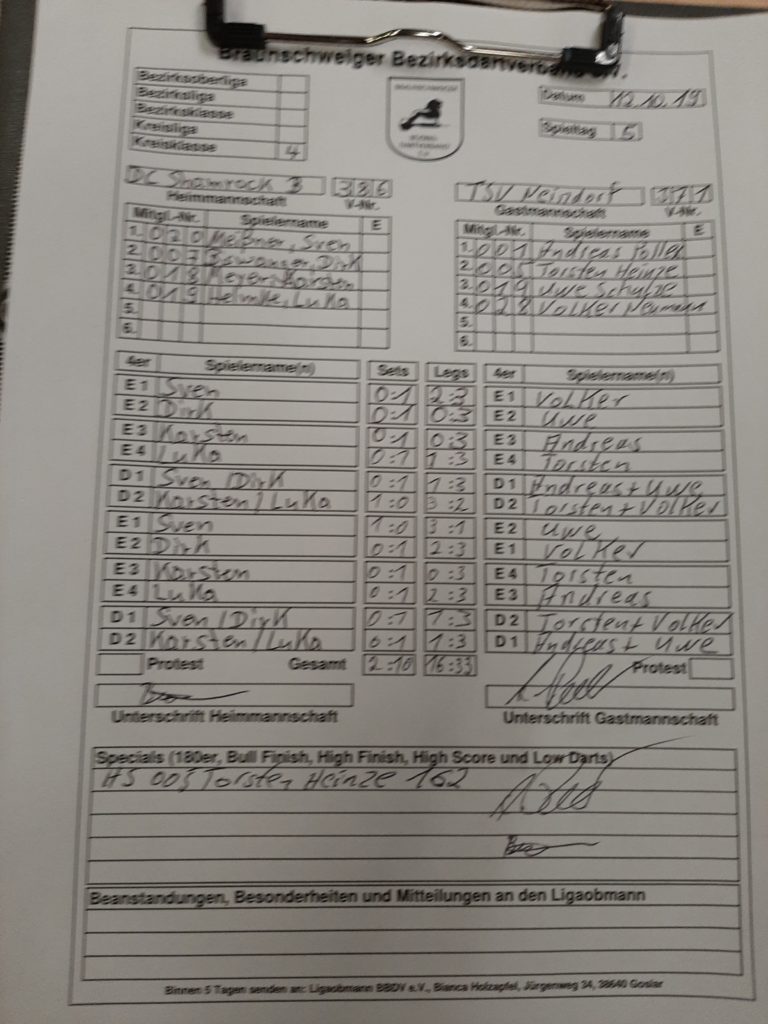 Braunschweiger Bezirksdartverband e.V.
Bezirksoberliga
Bezirksliga
Bezirksklasse
Kreisliga
Kreisklasse 4
Datum 12.10.19
Spieltag 5
DC Shamrock B 386
Heimmannschaft V-Nr.
TSV Neindorf 371
Gastmannschaft V-Nr.
Mitgl.-Nr. Spielername E
1. 020 Meißner, Sven
2. 007 Dirk
3. 018 Meyer, Karsten
4. 019 Helmke, Luka
5.
6.
Mitgl.-Nr. Spielername E
1. 001 Andreas
2. 005 Torsten Heinze
3. 019 Uwe Schulze
4. 028 Volker Neumann
5.
6.
4er Spielername(n) Sets Legs 4er Spielername(n)
E1 Sven 0:1 2:3 E1 Volker
E2 Dirk 0:1 0:3 E2 Uwe
E3 Karsten 0:1 0:3 E3 Andreas
E4 Luka 0:1 1:3 E4 Torsten
D1 Sven/Dirk 0:1 1:3 D1 Andreas + Uwe
D2 Karsten/Luka 1:0 3:2 D2 Torsten + Volker
E1 Sven 1:0 3:1 E2 Uwe
E2 Dirk 0:1 2:3 E1 Volker
E3 Karsten 0:1 0:3 E4 Torsten
E4 Luka 0:1 2:3 E3 Andreas
D1 Sven/Dirk 0:1 1:3 D2 Torsten + Volker
D2 Karsten/Luka 0:1 1:3 D1 Andreas + Uwe
Protest Gesamt 2:10 16:33 Protest
Unterschrift Heimmannschaft
Unterschrift Gastmannschaft
Specials (180er, Bull Finish, High Finish, High Score und Low Darts)
HS 005 Torsten Heinze 162
Beanstandungen, Besonderheiten und Mitteilungen an den Ligaobmann
Binnen 5 Tagen senden an: Ligaobmann BBDV e.V., Bianca Holzapfel, Jürgenweg 34, 38640 Goslar